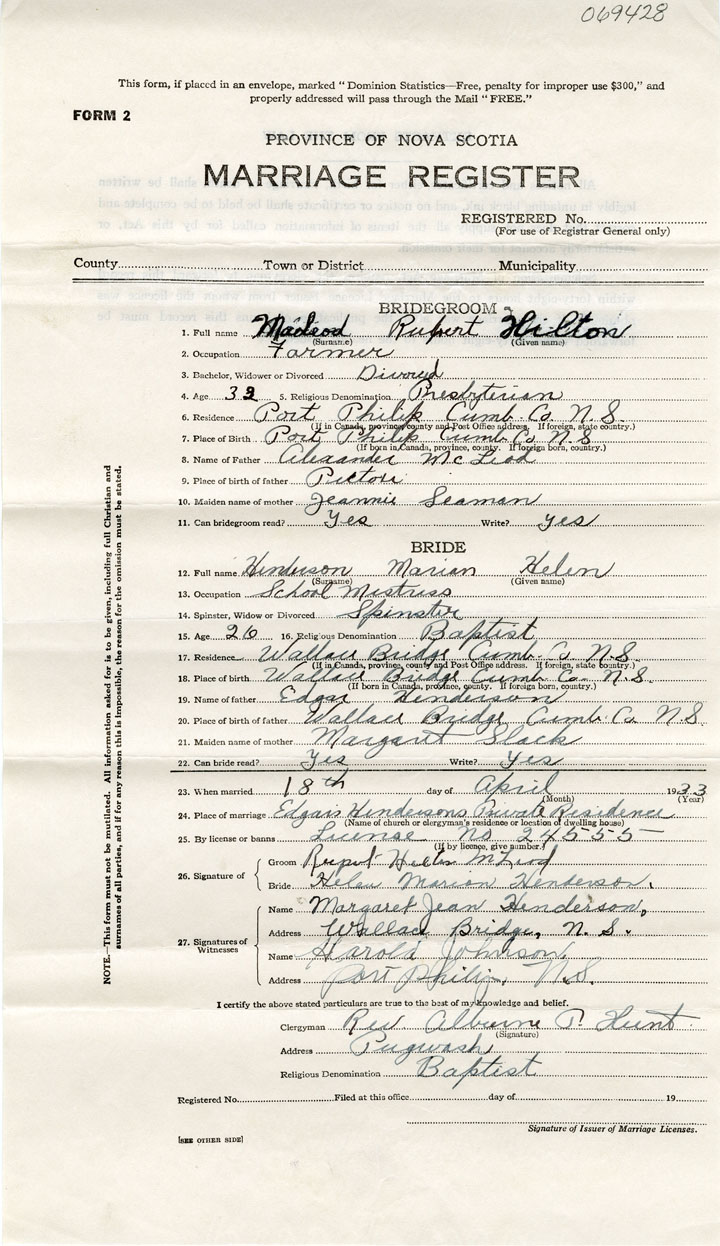 069428
This form, if placed in an envelope, marked "Dominion Statistics—Free, penalty for improper use $300," and
properly addressed will pass through the Mail "FREE."
FORM 2
PROVINCE OF NOVA SCOTIA
MARRIAGE REGISTER
REGISTERED No.
(For use of Registrar General only)
County Town or District Municipality
BRIDEGROOM
1. Full name Macleod Rupert Hilton
(Surname) (Given name)
2. Occupation Farmer
3. Bachelor, Widower or Divorced Divorced
4. Age 32 5. Religious Denomination Presbyterian
6. Residence Port Philip Cumb. Co. N.S.
(If in Canada, province, county and Post Office address. If foreign, state country.)
7. Place of Birth Port Philip Cumb. Co N S
(If born in Canada, province, county. If foreign born, country.)
8. Name of Father Alexander McLeod
9. Place of birth of father Pictou
10. Maiden name of mother Jeannie Seaman
11. Can bridegroom read? Yes Write? yes
BRIDE
12. Full name Henderson Marian Helen
(Surname) (Given name)
13. Occupation School Mistress
14. Spinster, Widow or Divorced Spinster
15. Age 26 16. Religious Denomination Baptist
17. Residence Wallace Bridge Cumb. Co N.S.
(If in Canada, province, county and Post Office address. If foreign, state country.)
18. Place of birth Wallace Bridge Cumb. Co. N.S.
(If born in Canada, province, county. If foreign born, country.)
19. Name of father Edgar Henderson
20. Place of birth of father Wallace Bridge Cumb. Co N.S
21. Maiden name of mother Margaret Slack
22. Can bride read? Yes Write? Yes
23. When married 18th day of April 1933
(Month) (Year)
24. Place of marriage Edgar Hendersons Private Residence
(Name of church or clergyman's residence or location of dwelling house)
25. By license or banns License No 24555
(If by licence, give number.)
26. Signature of
Groom Rupert Hilton McLeod
Bride Helen Marion Henderson.
27. Signatures of Witnesses
Name Margaret Jean Henderson,
Address Wallace Bridge, N. S.
Name Harold Johnson,
Address Port Philip, N.S.
I certify the above stated particulars are true to the best of my knowledge and belief.
Clergyman Rev P. Hunt
(Signature)
Address Pugwash
Religious Denomination Baptist
Registered No. Filed at this office day of 19
Signature of Issuer of Marriage Licenses.
[SEE OTHER SIDE]
NOTE.—This form must not be mutilated. All information asked for is to be given, including full Christian and
surnames of all parties, and if for any reason this is impossible, the reason for the omission must be stated.